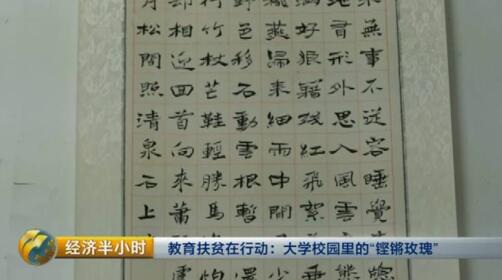 來無事不從容睡覺東
地有形外思入風雲
好狼籍殘紅飛絮
燕歸來細雨中
色移石動雲根暫
竹杖芒鞋輕勝馬
相迎回首向來蕭
月松間照清泉石上
经济半小时
教育扶贫在行动：大学校园里的“铿锵玫瑰”